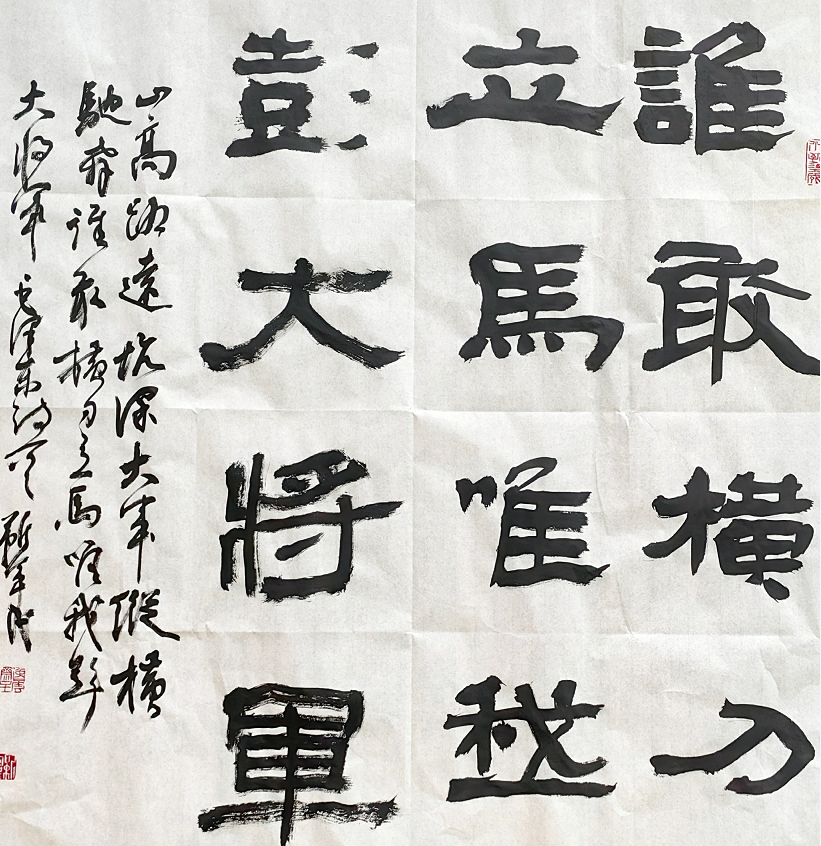 誰敢横刀
立馬唯我
彭大將軍
山高路遠坑深大軍縱横
馳奔誰敢横刀立馬唯我彭
大将軍 毛澤東詩